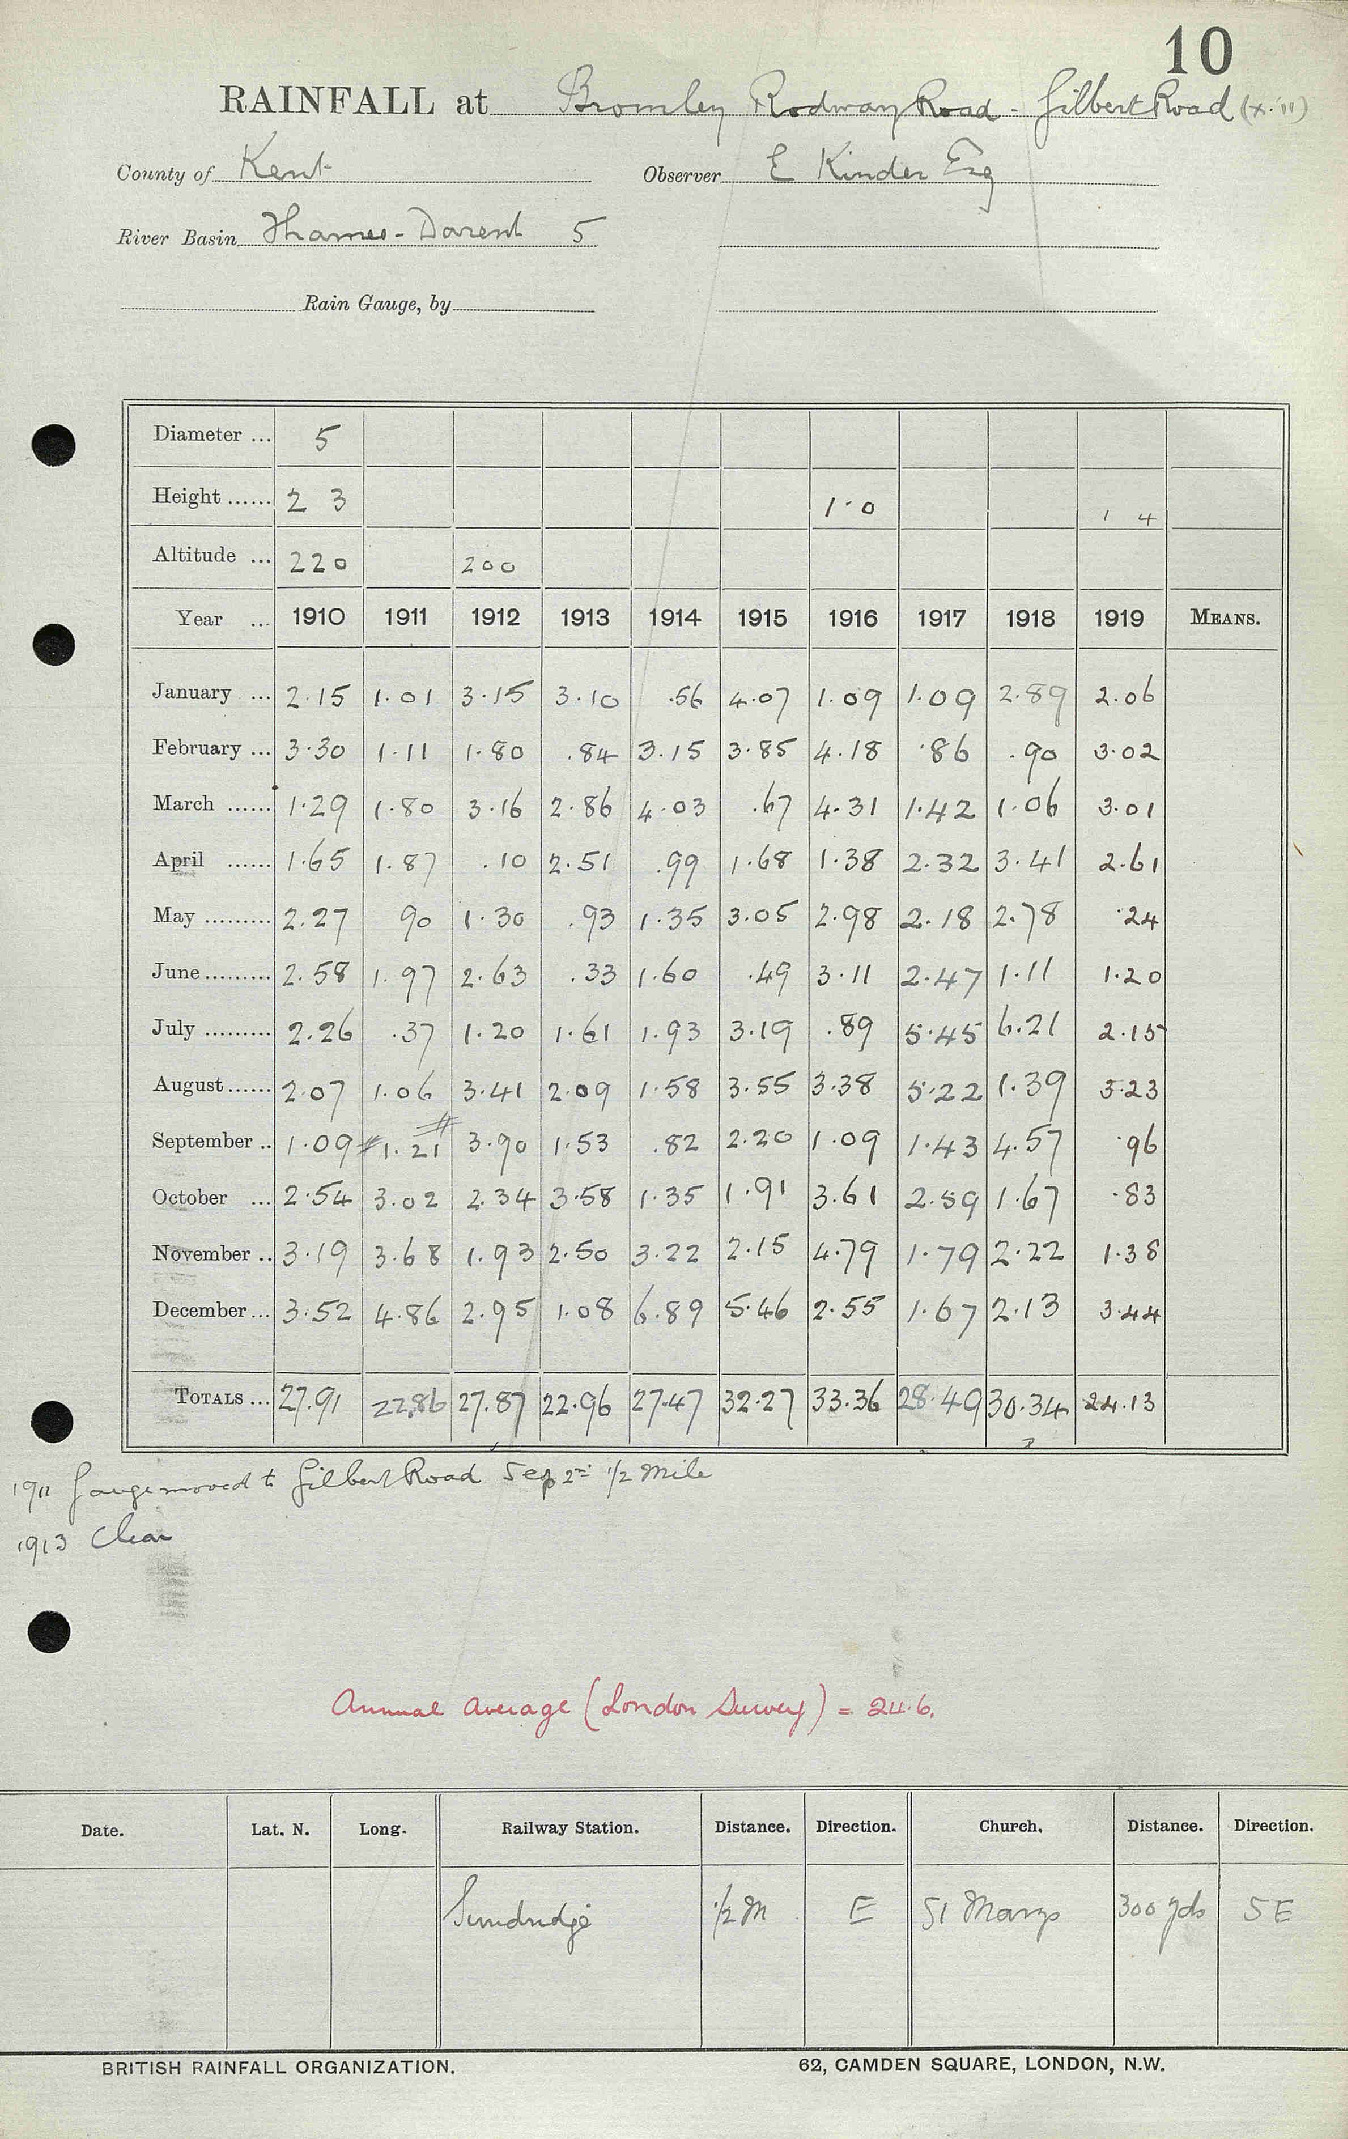 10
RAINFALL at Bromley Rodway Road - Gilbert Road (x.'11)
County of Kent Observer E Kinder Esq
River Basin Thames - Darent 5
Rain Gauge, by
Diameter ... 5
Height ...... 2 3 1·0 1 4
Altitude ... 220 200
Year ... 1910 1911 1912 1913 1914 1915 1916 1917 1918 1919 MEANS.
January ... 2.15 1.01 3.15 3.10 .56 4.07 1.09 1.09 2.89 2.06
February ... 3.30 1.11 1.80 .84 3.15 3.85 4.18 .86 .90 3.02
March ...... 1.29 1.80 3.16 2.86 4.03 .67 4.31 1.42 1.06 3.01
April ...... 1.65 1.87 .10 2.51 .99 1.68 1.38 2.32 3.41 2.61
May ......... 2.27 90 1.30 .93 1.35 3.05 2.98 2.18 2.78 .24
June ......... 2.58 1.97 2.63 .33 1.60 .49 3.11 2.47 1.11 1.20
July ......... 2.26 .37 1.20 1.61 1.93 3.19 .89 5.45 6.21 2.15
August ...... 2.07 1.06 3.41 2.09 1.58 3.55 3.38 5.22 1.39 3.23
September .. 1.09 #1.21# 3.90 1.53 .82 2.20 1.09 1.43 4.57 .96
October ... 2.54 3.02 2.34 3.58 1.35 1.91 3.61 2.59 1.67 .83
November .. 3.19 3.68 1.93 2.50 3.22 2.15 4.79 1.79 2.22 1.38
December ... 3.52 4.86 2.95 1.08 6.89 5.46 2.55 1.67 2.13 3.44
TOTALS ... 27.91 22.86 27.87 22.96 27.47 32.27 33.36 28.49 30.34 24.13
?
1911 Gauge moved to Gilbert Road Sep 2nd 1/2 mile
1913 Clear
Annual average (London Survey) = 24.6.
Date. Lat. N. Long. Railway Station. Distance. Direction. Church. Distance. Direction.
Sundridge 1/2 M E St Marys 300 yds SE
BRITISH RAINFALL ORGANIZATION. 62, CAMDEN SQUARE, LONDON, N.W.